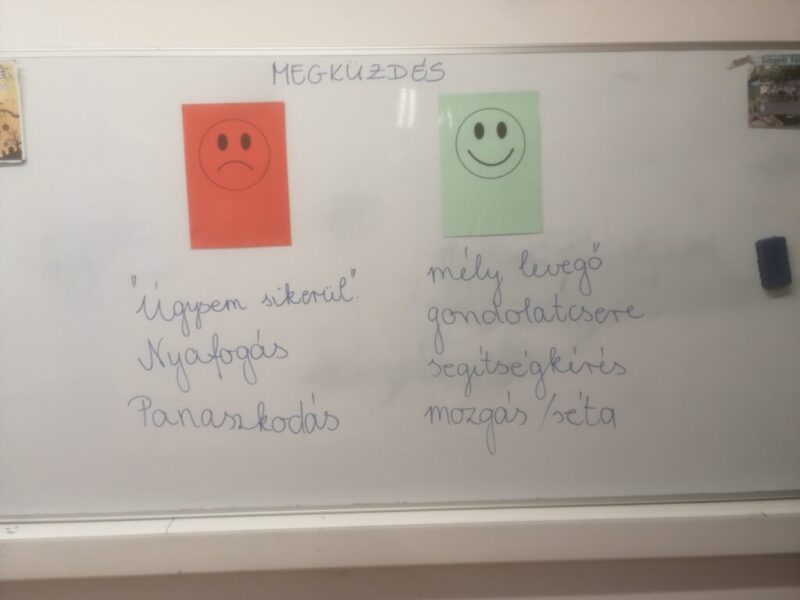 MEGKÜZDÉS
"Úgysem sikerül".
Nyafogás
Panaszkodás
mély levegő
gondolatcsere
segítségkérés
mozgás /séta